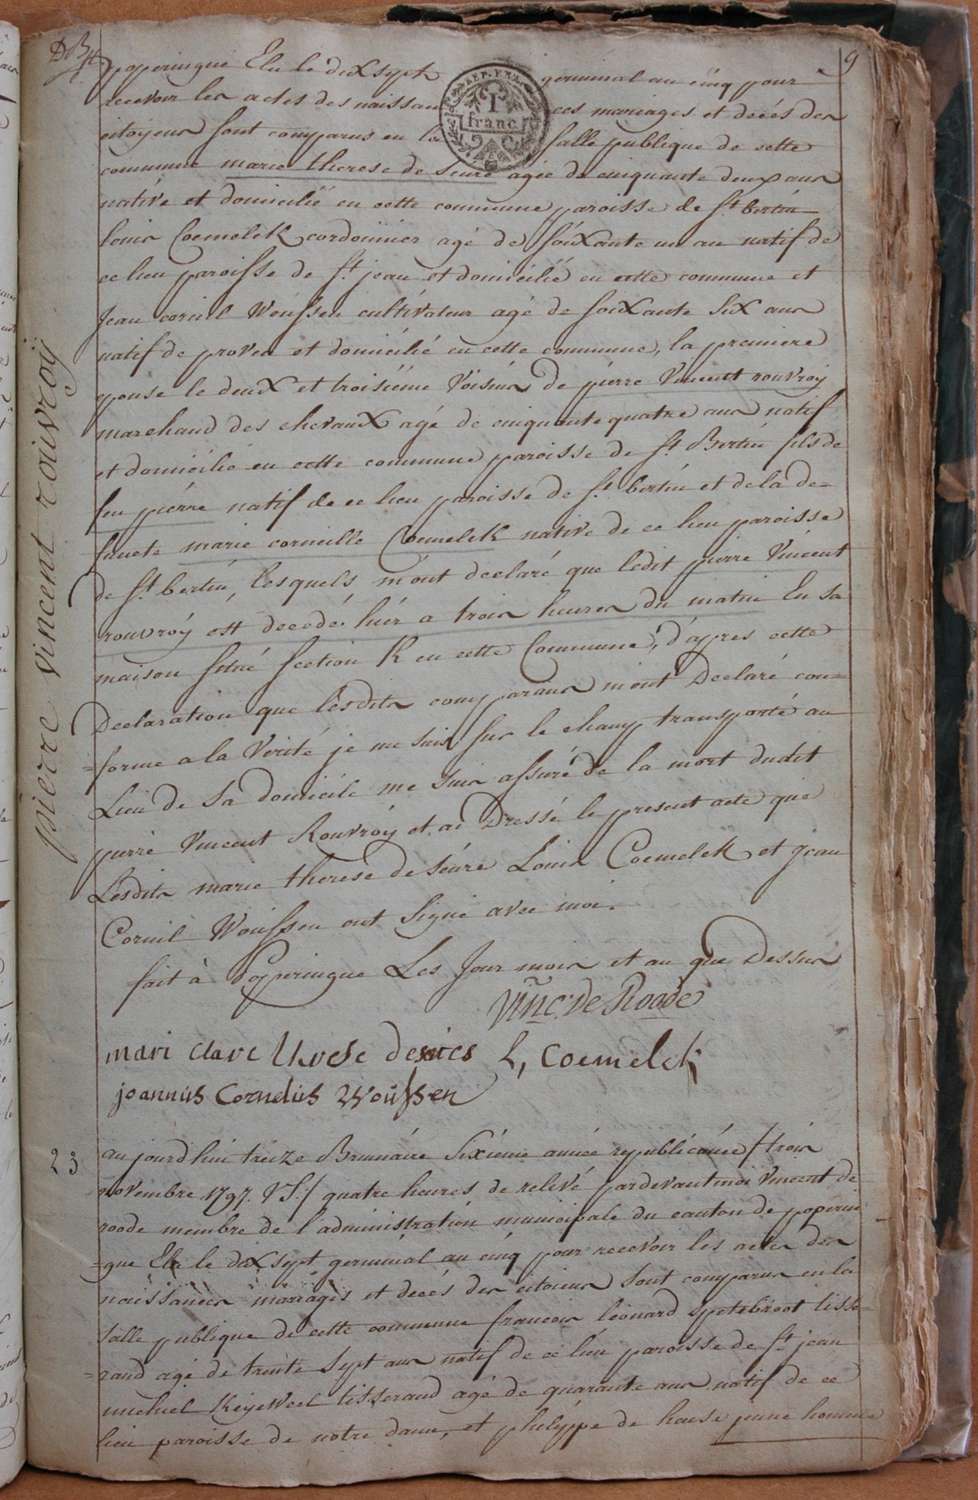 9
poperingue Elu le dix sept germinal an cinq pour
recevoir les actes des naissances mariages et decés des
1 franc
citoyens sont comparus en la salle publique de cette
commune marie therese de seure agée de cinquante deux ans
native et domiciliée en cette commune paroisse de St bertin
louis Coemelck cordonnier agé de soixante un an natif de
ce lieu paroisse de St jean et domicilié en cette commune et
jean cornil Woussen cultivateur agé de soixante six ans
natif de proven et domicilié en cette commune, la premiere
epouse le deux et troisième voisins de pierre Vincent rouvroy
marchand des chevaux agé de cinquante quatre ans natif
et domicilié en cette commune paroisse de St Bertin fils de
feu pierre natif de ce lieu paroisse de St bertin et de la de-
functe marie corneille Coemelck native de ce lieu paroisse
de St bertin, lesquels m'ont declaré que ledit pierre Vincent
rouvroÿ est decedé hier a trois heures du matin En sa
maison située section K en cette Commune, d'apres cette
Declaration que lesdits comparans m'ont Declaré con-
=forme a la Verité je me suis sur le champ transporté au
Lieu de sa domicile me suis assuré de la mort dudit
pierre Vincent Rouvroÿ et ai Dressé le present acte que
Lesdits marie therese de seure Louis Coemelck et jean
Cornil Woussen ont signé avec moi.
fait à Poperingue Les Jour mois et an que Dessus
Vinc. De Roode
mari clare L, Coemelck
joannus Cornelius Woussen
pierre vincent roivroÿ
23
aujourd'hui treize Brumaire Sixieme année republicaine / trois
novembre 1797. V S / quatre heures de relivé pardevant moi Vincent de
roode membre de l'administration municipale du canton de poperin
=gue Elu le dix sept germinal an cinq pour recevoir les actes des
naissances mariages et decés des citoiens sont comparus en la
salle publique de cette commune francois leonard Spotebroot tisse-
=rand agé de trente sept ans natif de ce lieu paroisse de St jean
michiel Keyeweel tisserand agé de quarante ans natif de ce
lieu paroisse de notre dame, et philippe de haese jeune homme